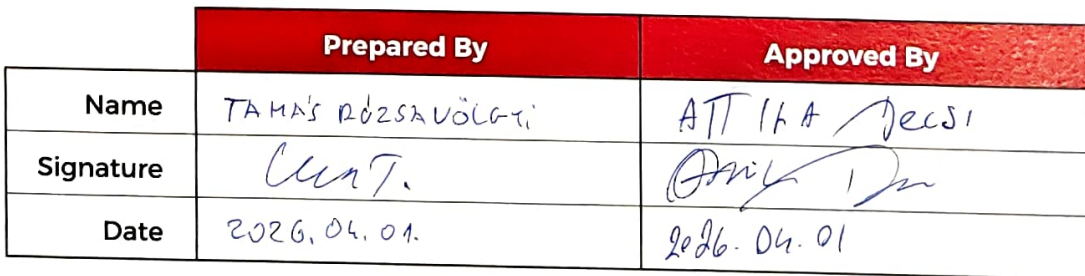 Prepared By Approved By
Name TAMÁS RÓZSAVÖLGYI ATTILA Decsi
Signature
Date 2026.04.01. 2026.04.01